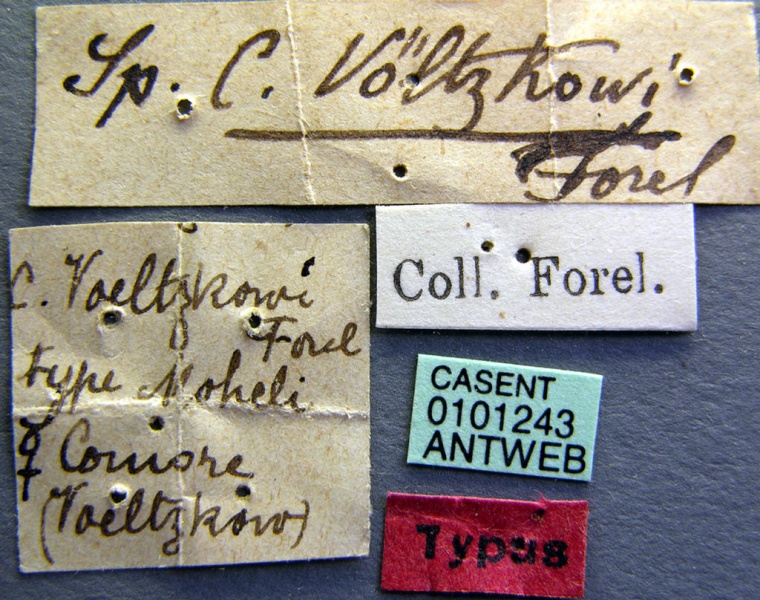 Sp. C. Völtzkowi
Forel
Coll. Forel.
C. Voeltzkowi
Forel
type Moheli
☿ Comore
(Voeltzkow)
CASENT
0101243
ANTWEB
Typus